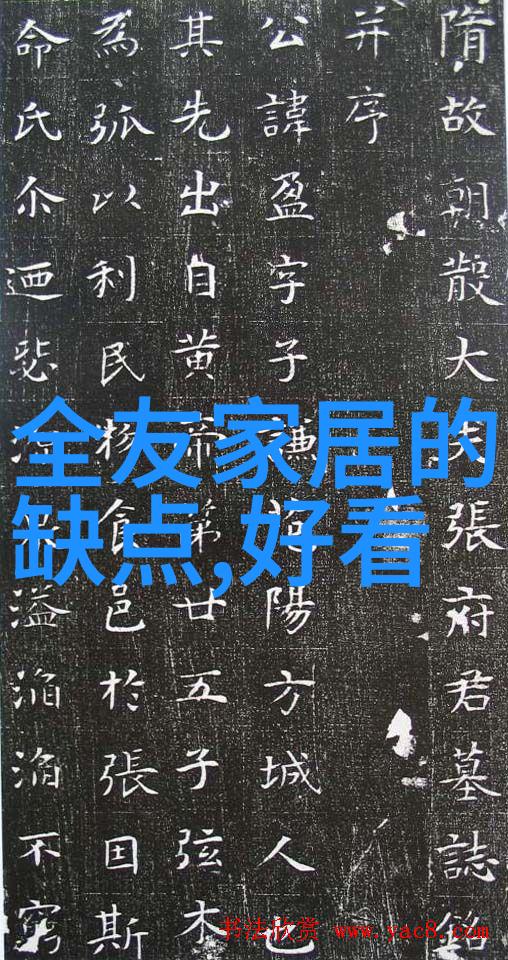 隋故朝散大夫張府君墓誌銘
并序
公諱盈字子謙陽方城人也
其先出自黃帝第廿五子弦木
為弧以利民食邑於張因斯
命氏尒迺溢滔滔不窮
全友家居的
缺点,好看
书法欣赏 www.yac8.com